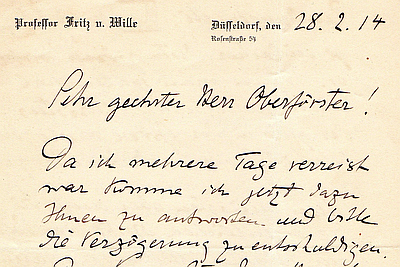 Professor Fritz v. Wille
Düsseldorf, den 28. 2. 14
Rosenstraße 54
Sehr geehrter Herr Oberförster!
Da ich mehrere Tage verreist
war komme ich jetzt dazu
Ihnen zu antworten und bitte
die Verzögerung zu entschuldigen.